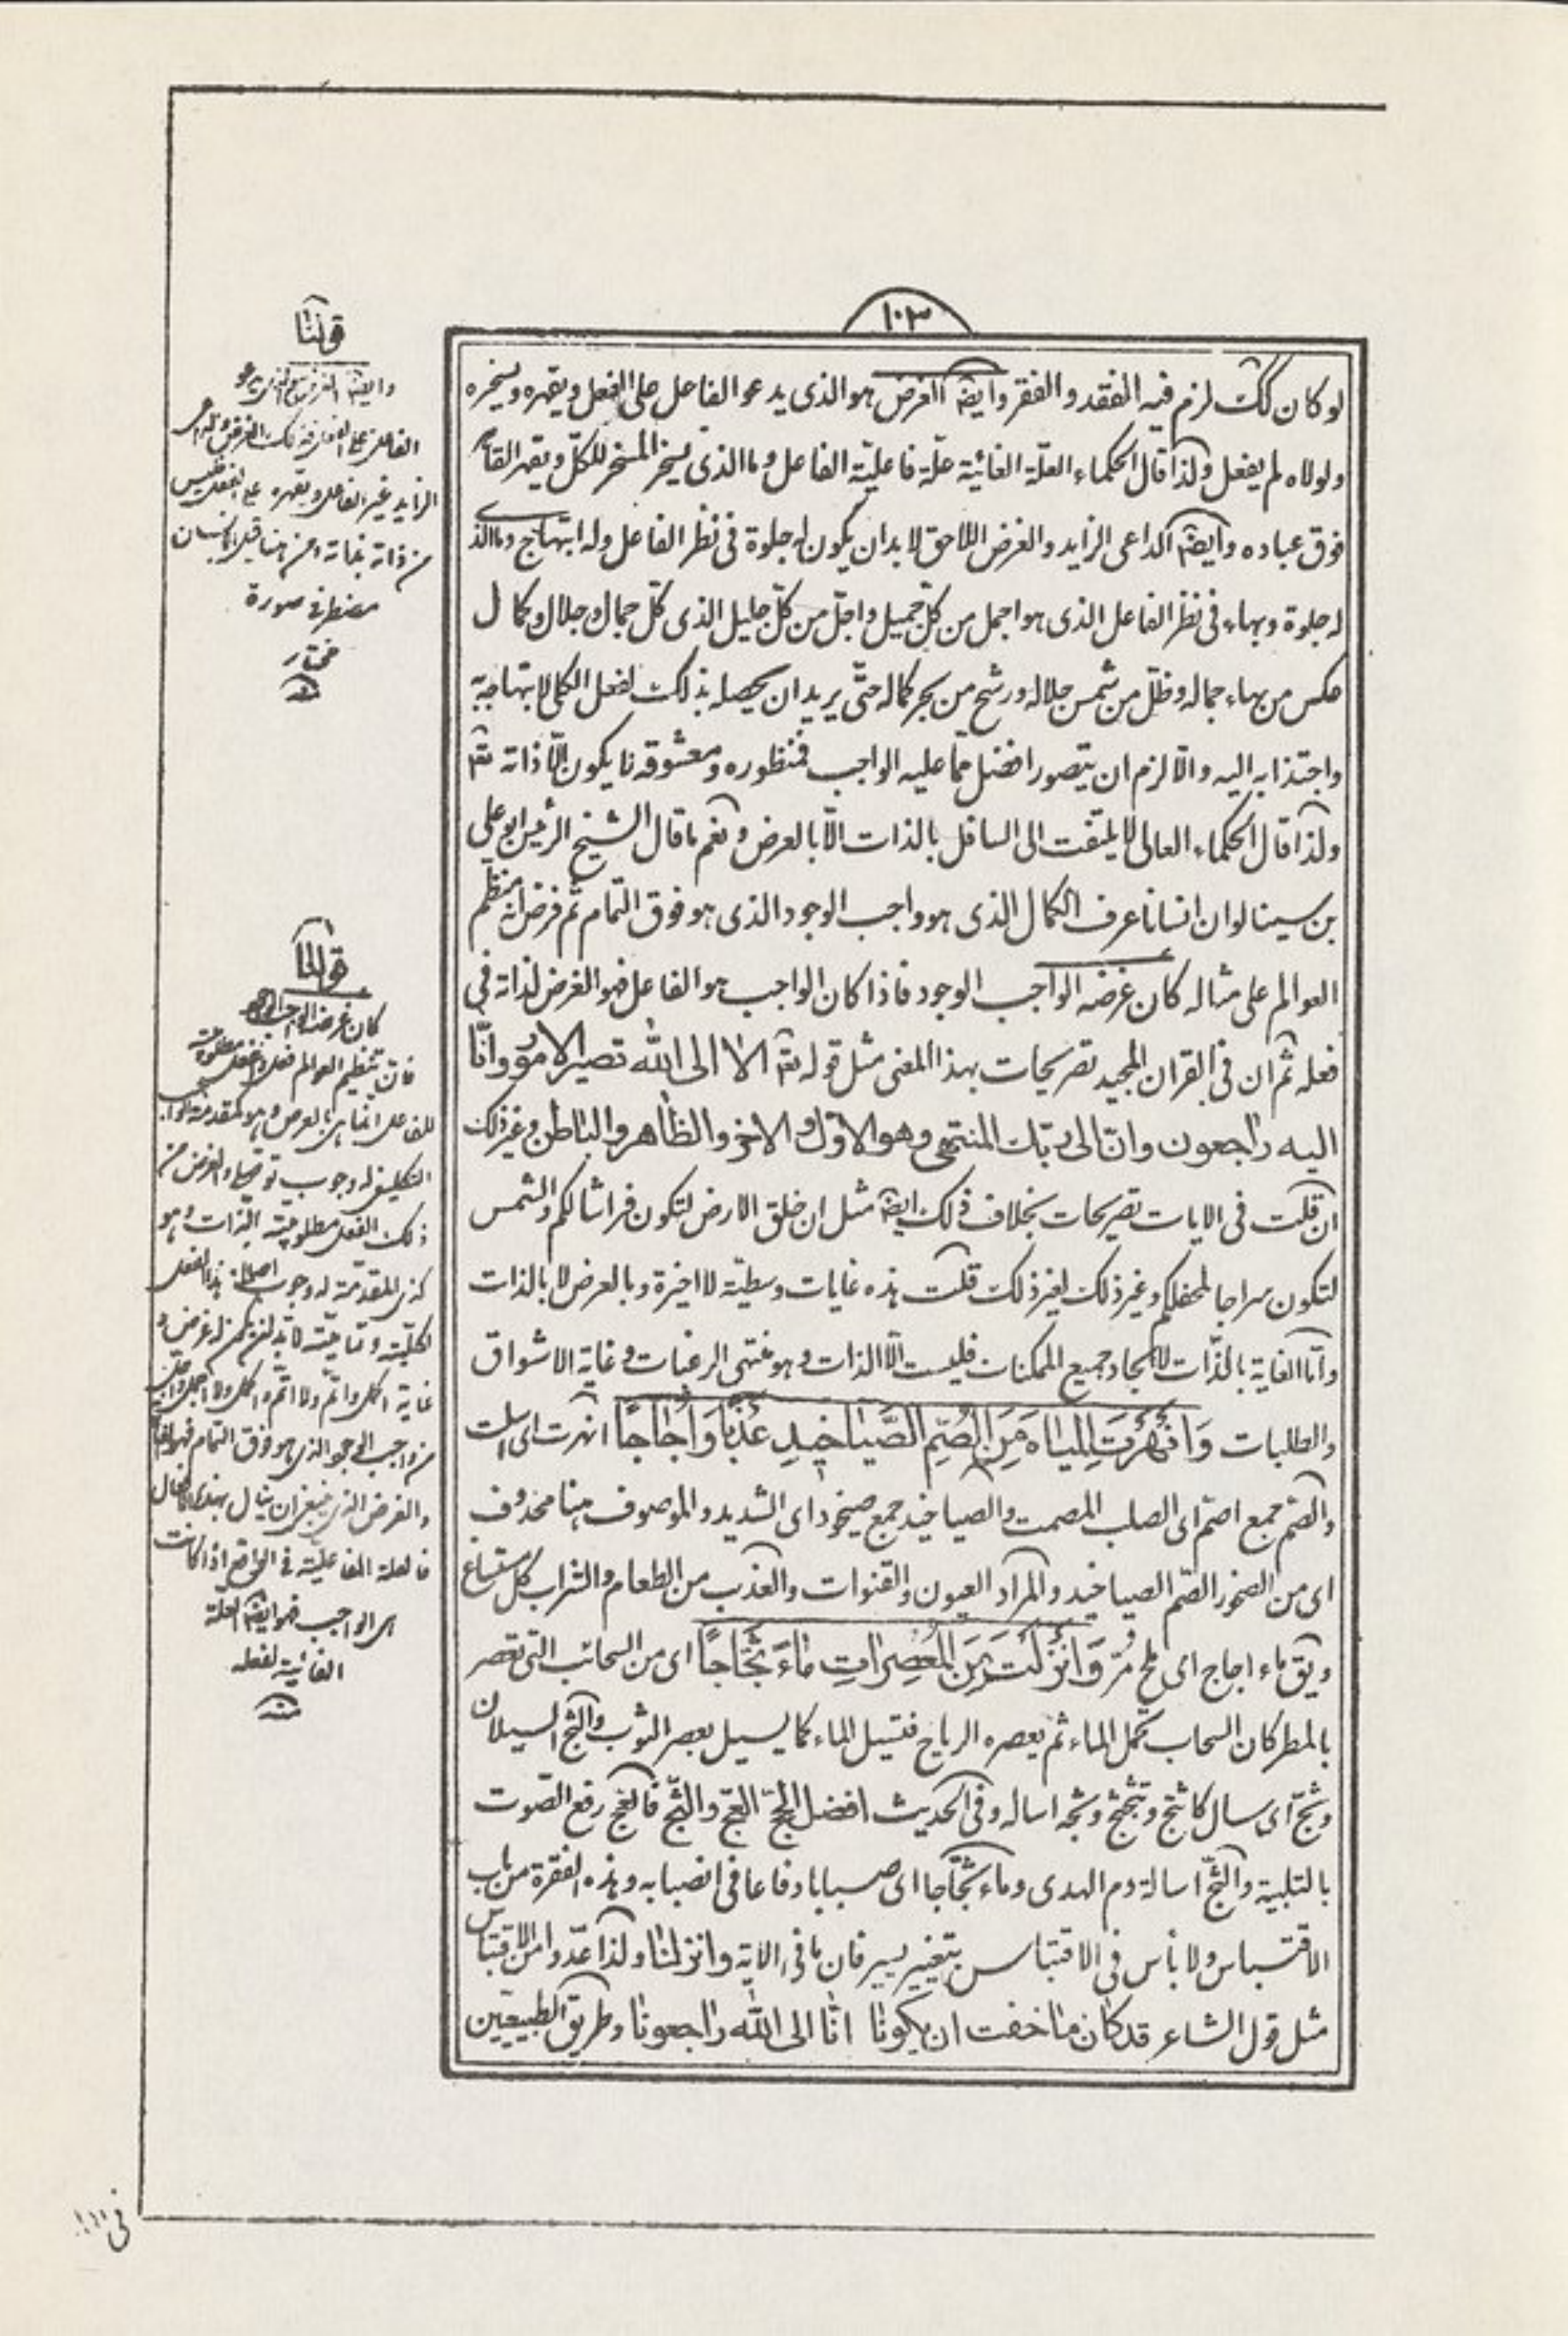 ١٠٣
لو كان كك لزم فيه الفقد و الفقر وايضا الغرض هو الذى يدعو الفاعل على الفعل ويقهره ويسخره
ولولاه لم يفعل ولذا قال الحكماء العلّة الغائية علّة فاعليّة الفاعل وما الذى يسخر المسخر للكلّ ويقهر القاهر
فوق عباده وايضا الداعى الزايد و الغرض اللاحق لابد ان يكون له جلوة فى نظر الفاعل وله ابتهاج وما الذى
له جلوة وبهاء فى نظر الفاعل الذى هو اجمل من كلّ جميل واجلّ من كلّ جليل الذى كلّ جمال وجلال وكمال
عكس من بهاء جماله وظلّ من شمس جلاله ورشح من بحر كماله حتّى يريد ان يحصله بذلك الفعل الكلى لابتهاجه به
واجتذابه اليه والّا لزم ان يتصور افضل ممّا عليه الواجب فمنظوره ومعشوقه لا يكون الّا ذاته تعـ
ولذا قال الحكماء العالى لا يلتفت الى السافل بالذات الّا بالعرض ونعم ما قال الشيخ الرئيس ابو على
بن سينا لو ان انسانا عرف الكمال الذى هو واجب الوجود الذى هو فوق التمام ثم فرض انه ينظم
العوالم على مثاله كان غرضه الواجب الوجود فاذا كان الواجب هو الفاعل فهو الغرض لذاته فى
فعله ثم ان فى القران المجيد تصريحات بهذا المعنى مثل قوله تعـ الا الى الله تصير الامور وانّا
اليه راجعون وانّ الى ربّك المنتهى وهو الاوّل و الاخر و الظاهر و الباطن وغير ذلك
ان قلت فى الايات تصريحات بخلاف ذلك ايضا مثل ان خلق الارض لتكون فراشا لكم والشمس
لتكون سراجا لمحفلكم وغير ذلك لغير ذلك قلت هذه غايات وسطيّة لا اخيرة وبالعرض لا بالذات
وامّا الغاية بالذّات لايجاد جميع الممكنات فليست الّا الذات وهو منتهى الرغبات وغاية الاشواق
والطلبات وَاَنْهَرْتَ المِياهَ مِنَ الصُمِّ الصَّياخيدِ عَذْبًا وَاُجاجًا انهرت اى اسلت
والصّم جمع اصمّ اى الصلب المصمت والصياخيد جمع صيخود اى الشديد و الموصوف هنا محذوف
اى من الصخور الصّم الصياخيد و المراد العيون و القنوات و العذب من الطعام و الشراب كل مستساغ
ويق ماء اجاج اى ملح مرّ وَاَنْزَلْتَ مِنَ المُعْصِراتِ ماءً ثَجّاجًا اى من السحائب التى تعصر
بالمطر كان السحاب يحمل الماء ثم يعصره الرياح فتسيل الماء كما يسيل بعصر الثوب والثج السيلان
وثجّ اى سال كانثج وتثجثج وثجه اساله وفى الحديث افضل الحجّ العجّ والثّج فالعج رفع الصّوت
بالتلبية والثّج اسالة دم الهدى وماء ثجّاجا اى صبابا دفاعا فى انصبابه وهذه الفقرة من باب
الاقتباس ولا بأس فى الاقتباس بتغيير يسير فان ما فى الاية وانزلنا ولذا عدّوا من الاقتباس
مثل قول الشاعر قد كان ما خفت ان يكونا انّا الى الله راجعونا وطريق الطبيعيين
قولنا
وايضا الغرض هو الذى يدعو
الفاعل على
الزايد غير الفاعل ويقهره على الفعل فليس
مضطر فى صورة
مختار
منه
قولنا
كان غرضه الواجب الوجود
فان تنظيم العوالم فعل
للفاعل انما هى بالعرض وهو كمقدمة الواجب
ذلك الفعل مطلوبيّته بالذات وهو
كذى المقدّمة له وجوب اصالة
غاية اكمل واتم
من واجب الوجود الذى هو فوق التمام
والغرض الذى ينبغى ان ينال بهذا
فالعلة الفاعليّة فى الواقع اذا كانت
هى الواجب فهو ايضا العلة
الغائية لفعله
منه